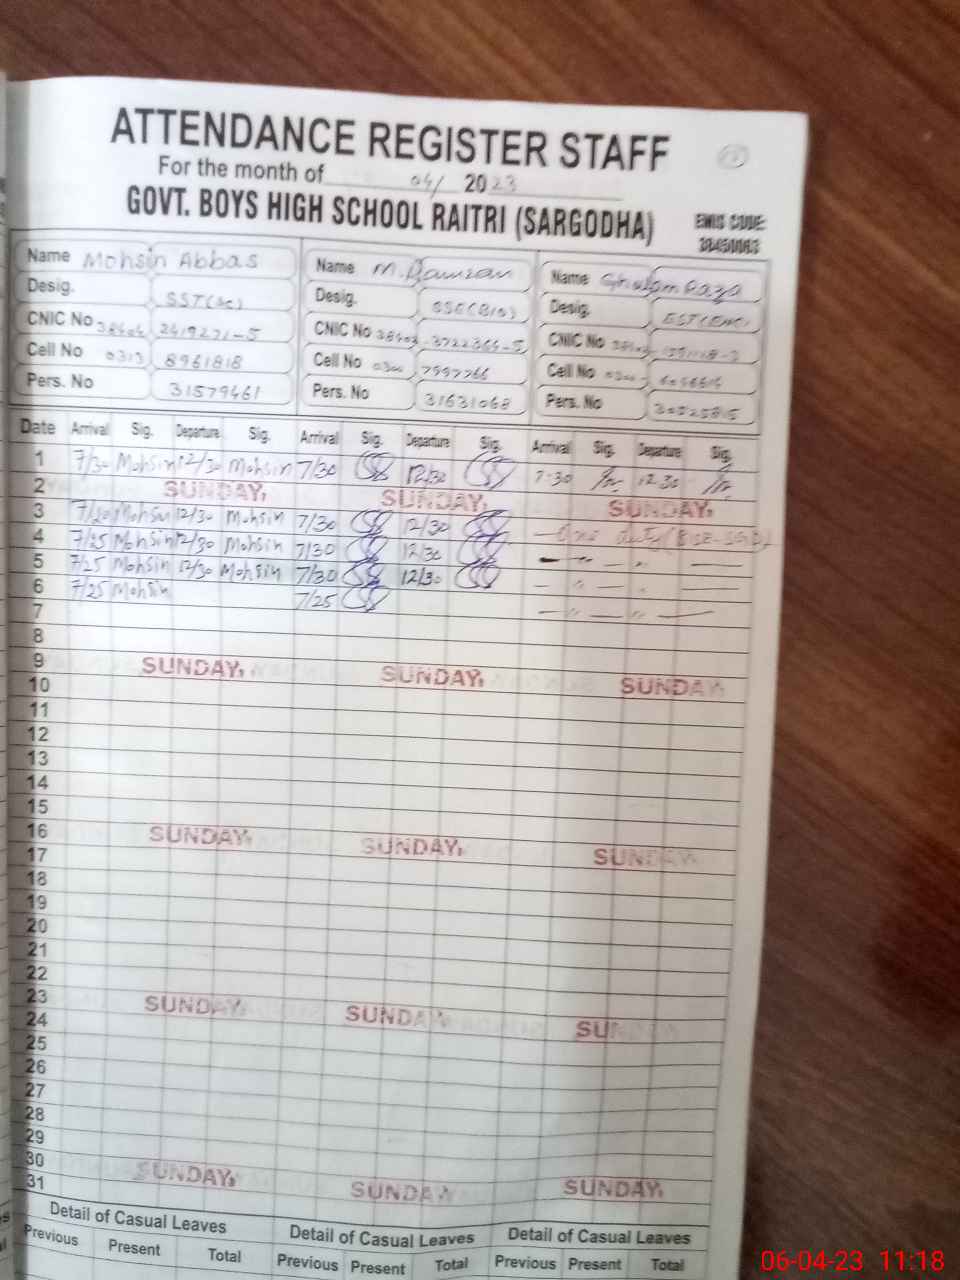 ATTENDANCE REGISTER STAFF
For the month of 04/ 2023
GOVT. BOYS HIGH SCHOOL RAITRI (SARGODHA)
EMIS CODE:
Name Mohsin Abbas Name M. Name Ghulam Raza
Desig. SST(Sc) Desig. Desig.
CNIC No 38404 2419271-5 CNIC No CNIC No
Cell No 0313 8961818 Cell No 0300 7997766 Cell No
Pers. No 31579461 Pers. No 31631068 Pers. No 30525815
Date Arrival Sig. Departure Sig. Arrival Sig. Departure Sig. Arrival Sig. Departure Sig.
1 7/30 Mohsin 12/30 Mohsin 7/30 12/30 7:30 12.30
2 SUNDAY, SUNDAY, SUNDAY,
3 7/20 Mohsin 12/30 Mohsin 7/30 12/30
4 7/25 Mohsin 12/30 Mohsin 7/30 12/30
5 7/25 Mohsin 12/30 Mohsin 7/30 12/30
6 7/25 Mohsin 7/25
7
8
9 SUNDAY, SUNDAY, SUNDAY,
10
11
12
13
14
15
16 SUNDAY, SUNDAY, SUNDAY,
17
18
19
20
21
22
23 SUNDAY, SUNDAY SUNDAY
24
25
26
27
28
29
30 SUNDAY, SUNDAY SUNDAY,
31
Detail of Casual Leaves Detail of Casual Leaves Detail of Casual Leaves
Previous Present Total Previous Present Total Previous Present Total
06-04-23 11:18